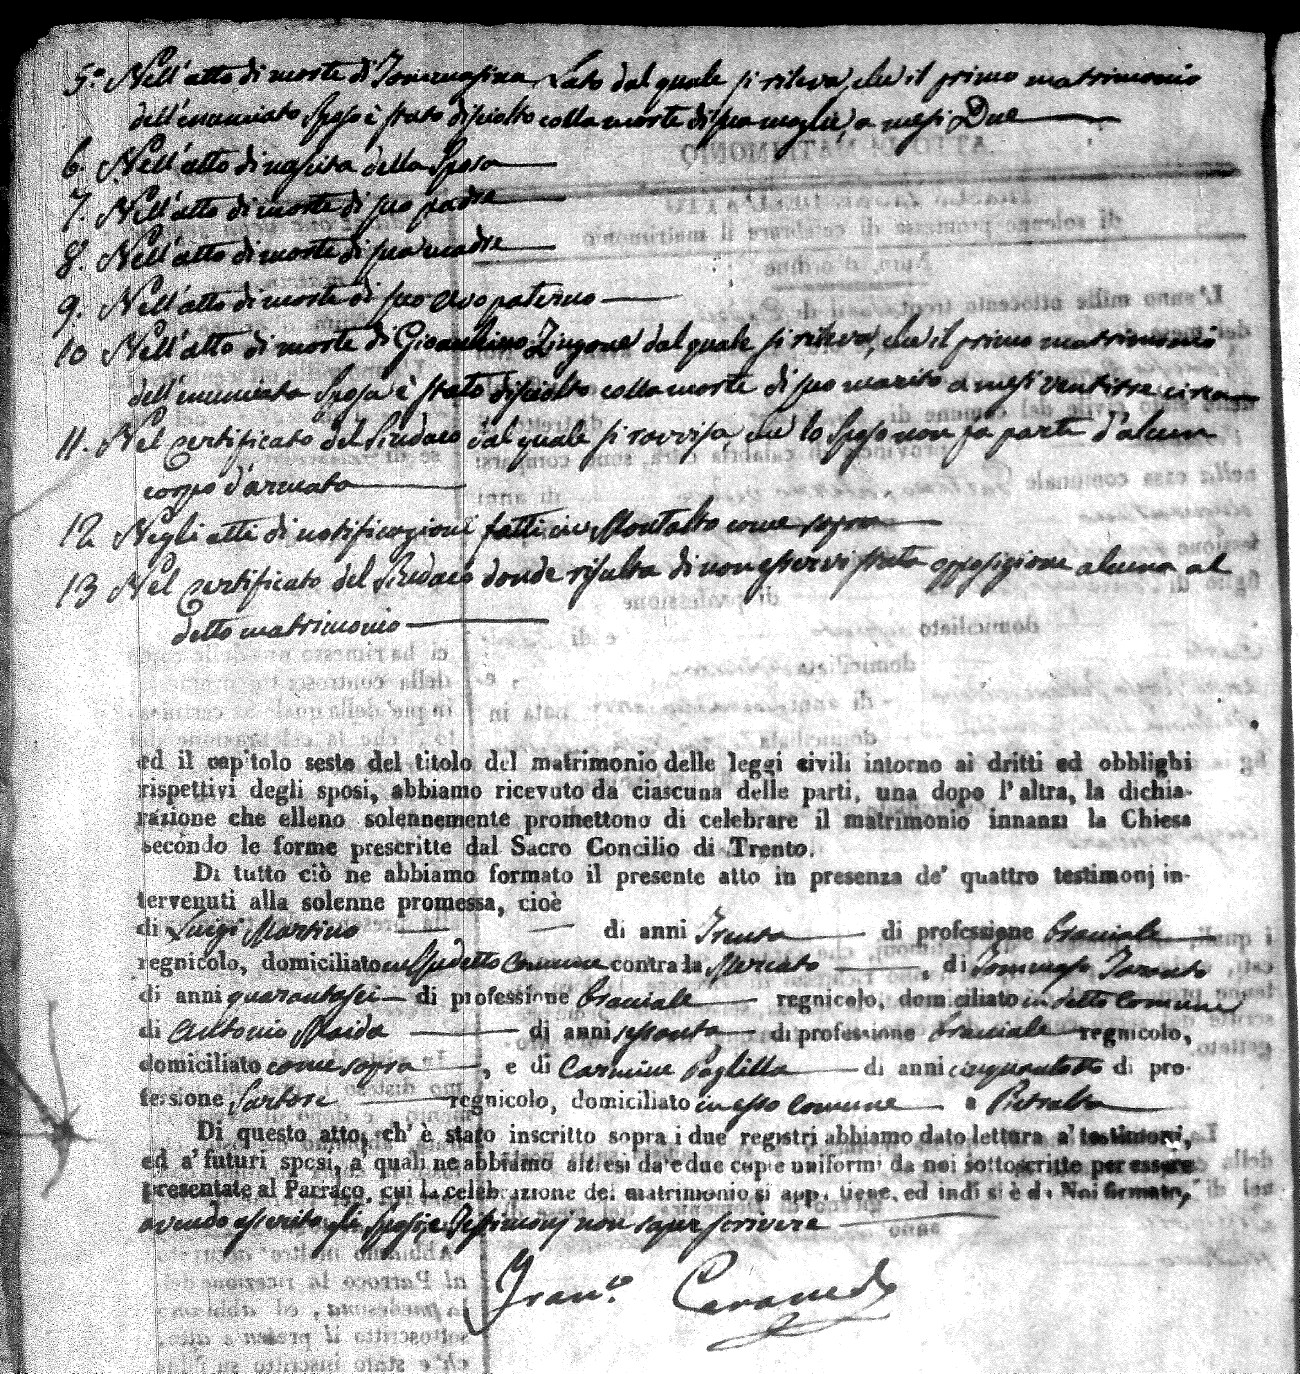 5.° Nell'atto di morte di Tommasina Lato dal quale si rileva, che il primo matrimonio
dell'enunciato Sposo è stato disciolto colla morte di sua moglie, a mesi Due
6. Nell'atto di nascita della Sposa
7. Nell'atto di morte di suo padre
8. Nell'atto di morte di sua madre
9. Nell'atto di morte di suo avo paterno
10 Nell'atto di morte di Zingone dal quale si rileva, che il primo matrimonio
dell'enunciata Sposa è stato disciolto colla morte di suo marito a mesi ventitre circa
11. Nel certificato del Sindaco dal quale si ravvisa, che lo Sposo non fa parte d'alcun
corpo d'armata
12 Negli atti di notificazioni fatti in Montalto come sopra
13 Nel certificato del Sindaco donde risulta di non esservi stata opposizione alcuna al
detto matrimonio
ed il capitolo sesto del titolo del matrimonio delle leggi civili intorno ai dritti ed obblighi
rispettivi degli sposi, abbiamo ricevuto da ciascuna delle parti, una dopo l'altra, la dichia-
razione che elleno solennemente promettono di celebrare il matrimonio innanzi la Chiesa
secondo le forme prescritte dal Sacro Concilio di Trento.
Di tutto ciò ne abbiamo formato il presente atto in presenza de' quattro testimonj in-
tervenuti alla solenne promessa, cioè
di Luigi Martino di anni Trenta di professione bracciale
regnicolo, domiciliato in detto Comune contrada Mercato, di Tommaso
di anni quarantasei di professione bracciale regnicolo, domiciliato in detto Comune
di Antonio Maida di anni sessanta di professione bracciale regnicolo,
domiciliato come sopra, e di Carmine Paglilla di anni cinquantotto di pro-
fessione Sartore regnicolo, domiciliato in esso Comune a Pietralta
Di questo atto, ch'è stato inscritto sopra i due registri abbiamo dato lettura a' testimoni,
ed a' futuri sposi, a quali ne abbiamo altresi date due copie uniformi da noi sottoscritte per essere
presentate al Parraco, cui la celebrazione del matrimonio si appartiene, ed indi si è da Noi firmato,
avendo asserito gli Sposi, e Testimonj non saper scrivere
Fran.co